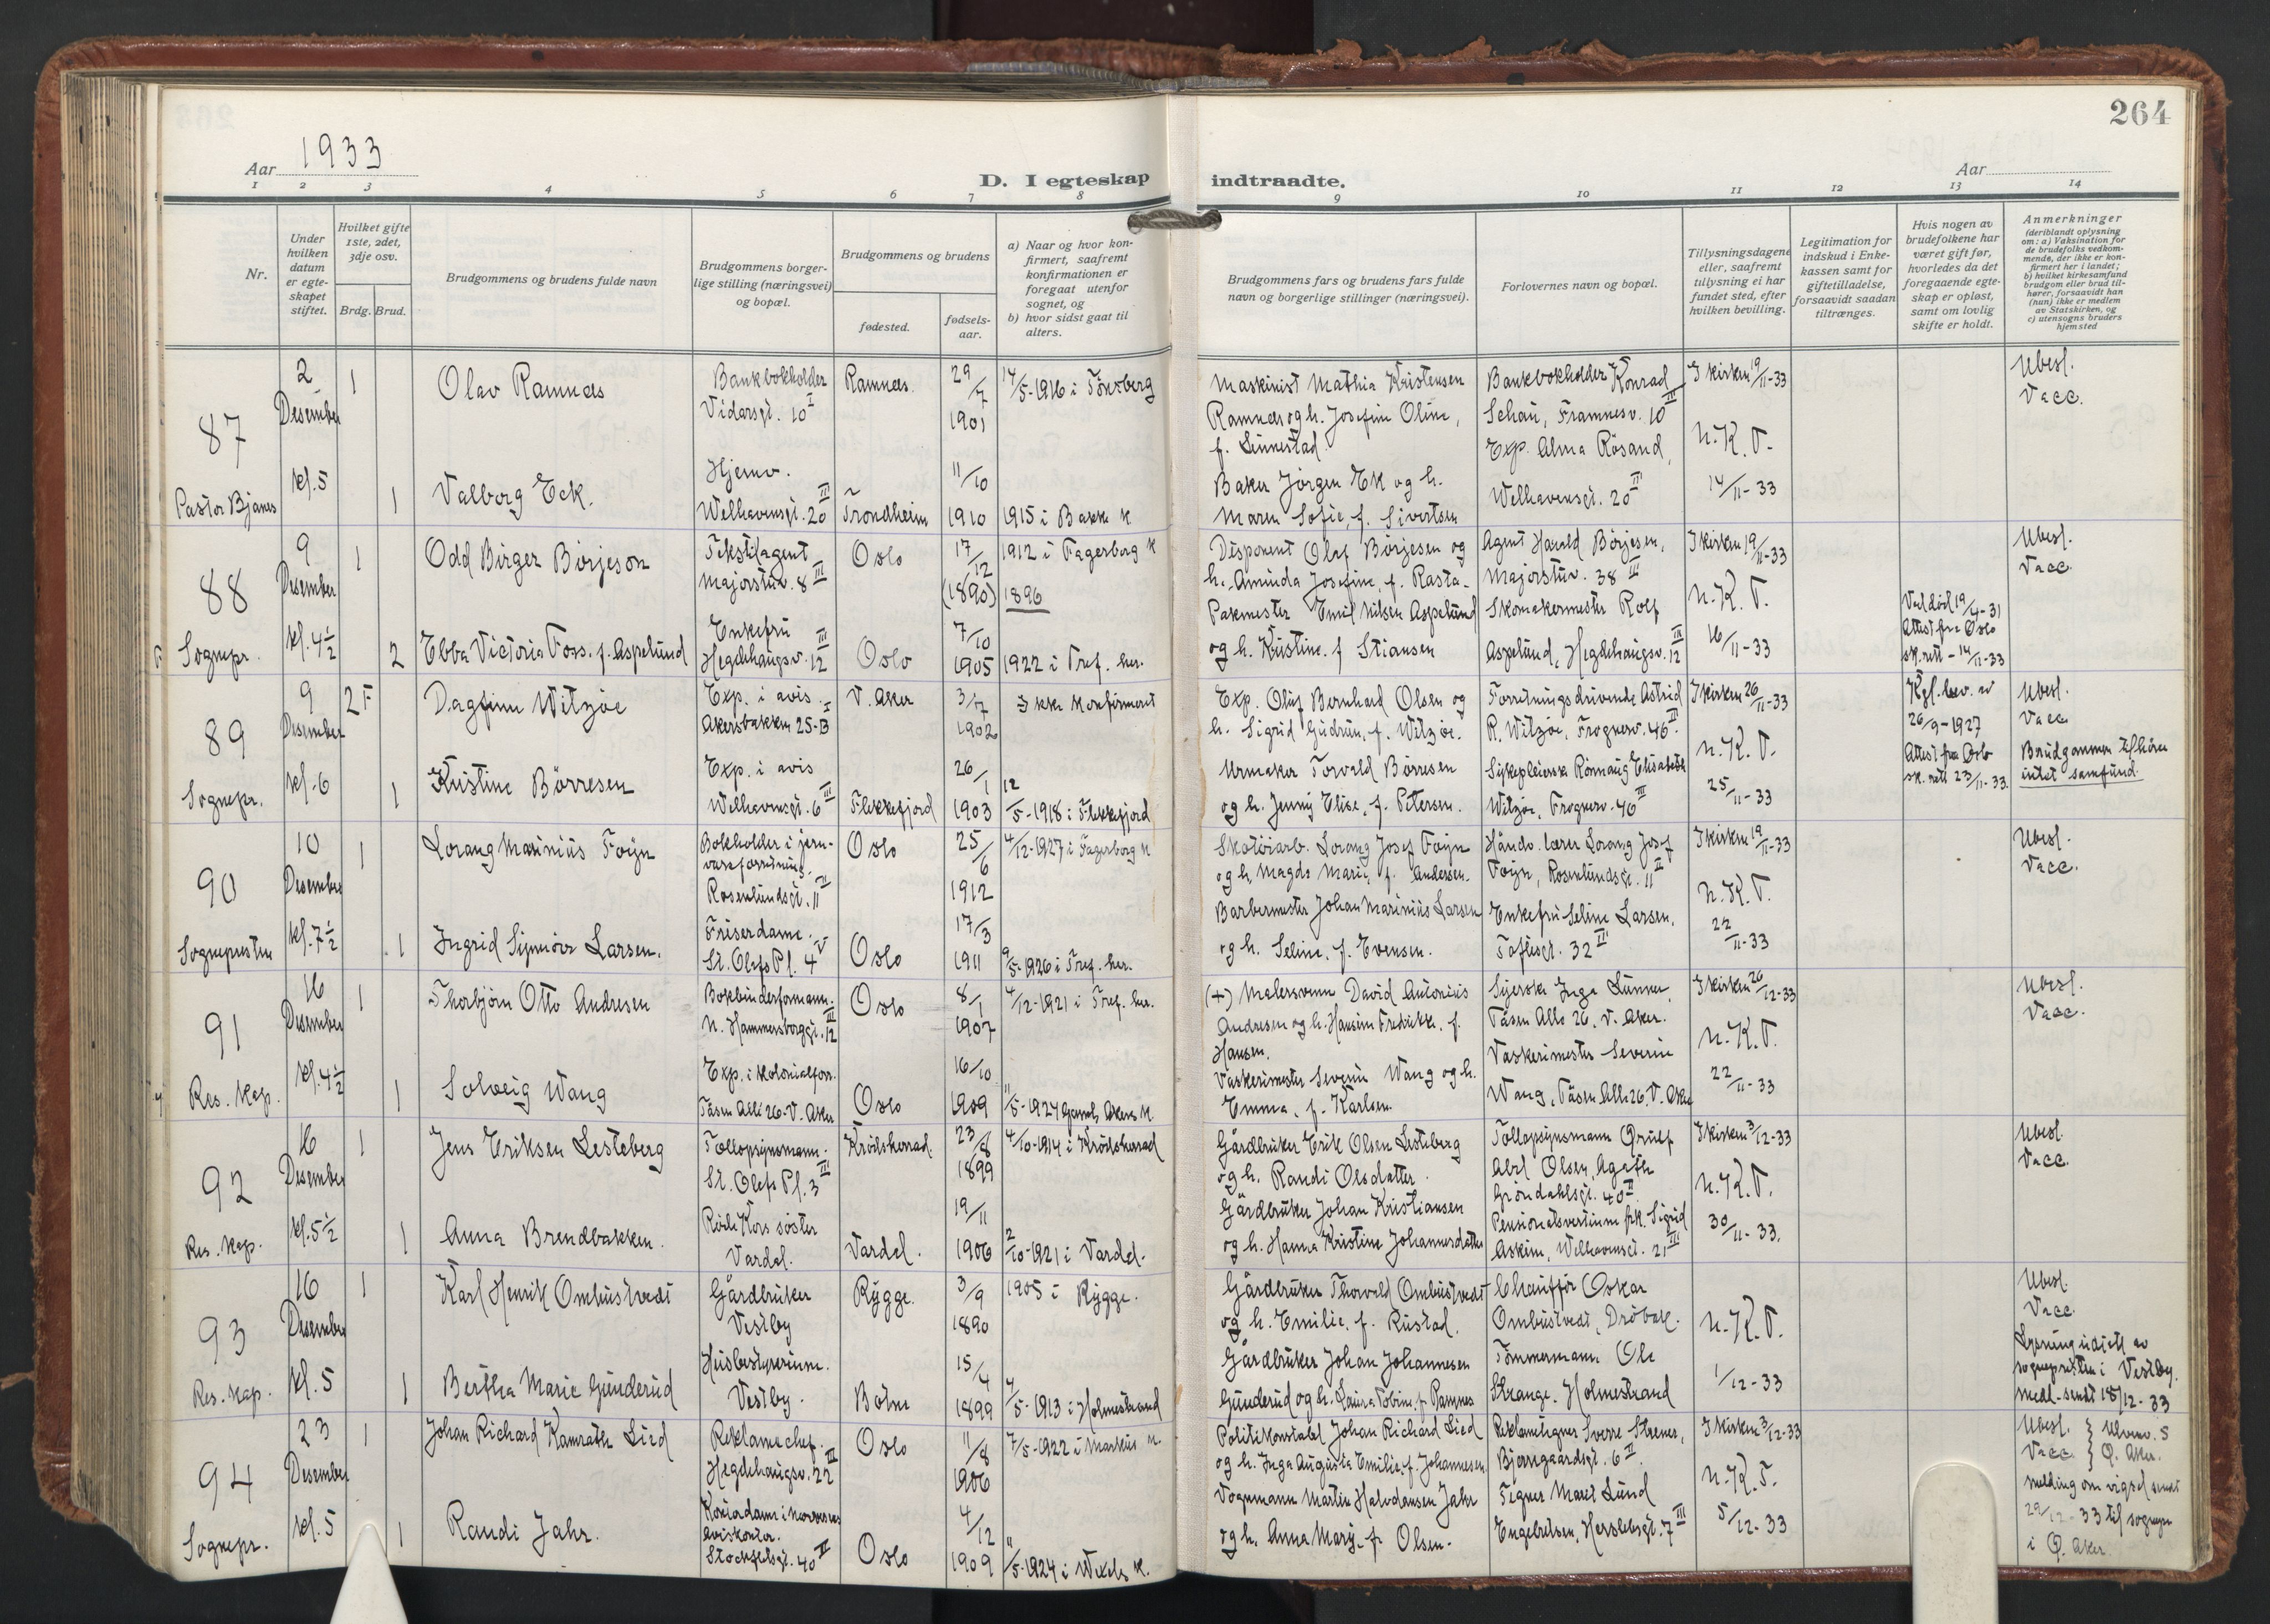 264
Aar 1933
D. I egteskap indtraadte.
Aar
1 2 3 4 5 6 7 8 9 10 11 12 13 14
Nr.
Under hvilken datum er egteskapet stiftet.
Hvilket gifte 1ste, 2det, 3dje osv.
Brdg. Brud.
Brudgommens og brudens fulde navn
Brudgommens borgerlige stilling (næringsvei) og bopæl.
Brudgommens og brudens
fødested.
fødselsaar.
a) Naar og hvor konfirmert, saafremt konfirmationen er foregaat utenfor sognet, og
b) hvor sidst gaat til alters.
Brudgommens fars og brudens fars fulde navn og borgerlige stillinger (næringsvei).
Forlovernes navn og bopæl.
Tillysningsdagene eller, saafremt tillysning ei har fundet sted, efter hvilken bevilling.
Legitimation for indskud i Enkekassen samt for giftetilladelse, forsaavidt saadan tiltrænges.
Hvis nogen av brudefolkene har været gift før, hvorledes da det foregaaende egteskap er opløst, samt om lovlig skifte er holdt.
Anmerkninger (deriblandt oplysning om: a) Vaksination for de brudefolks vedkommende, der ikke er konfirmert her i landet; b) hvilket kirkesamfund brudgom eller brud tilhører, forsaavidt han (hun) ikke er medlem av Statskirken, og c) utensogns bruders hjemsted
87
Pastor Bjanes
2 Desember kl. 5
1 Olav Ramnæs
Bankbokholder Vidarsgt. 10 I
Ramnæs. 29/7 1901
14/5-1916 i Tönsberg
Maskinist Mathia Kristensen
Ramnæs og h. Josefine Oline,
f. Linnestad.
Bankbokholder Konrad
Schau, Framnesv. 10 III
I kirken 19/11-33
N.K.T.
14/11-33
Ubesl.
Vacc.
1 Valborg Eck.
Hjemv. Welhavensgt. 20 III
Trondheim 11/10 1910
1915 i Bakke K
Baker Jörgen Ek og h.
Maren Sofie, f. Sivertsen
Exp. Alma Rösand,
Welhavensgt. 20 III
88
Sognepr.
9 Desember kl. 4 1/2
1 Odd Birger Börjeson
Tekstilagent Majorstuv. 8 III
Oslo 17/12 (1890) 1896
1912 i Fagerborg K
Disponent Olaf Börjesen og
h. Aminda Josefine, f. Rasta-
Agent Harald Börjesen,
Majorstuv. 38 III
I kirken 19/11-33
N.K.T.
16/11-33
Ubesl.
Vacc
2 Ebba Victoria Foss. f. Aspelund
Enkefru Hegdehaugsv. 12 III
Oslo 7/10 1905
1922 i Tref. her.
Pakmester Emil Nilsen Aspelund
og h. Kristine. f Stiansen
Skomakermester Rolf
Aspelund, Hegdehaugsv. 12 III
Ved död 19/4-31
Attest fra Oslo
sk.rett - 14/11-33
89
Sognepr.
9 Desember kl. 6
2 F Dagfinn Witzöe
Exp. i avis. Akersbakken 25-B I
V. Aker 3/7 1902
Ikke konfirmert
Exp. Oluf Bernhard Olsen og
h. Sigrid Gudrun, f. Witzöe.
Forretningsdrivende Astrid
R. Witzöe, Frognerv. 46 III
I kirken 26/11-33
N.K.T.
25/11-33
Kgl. bev. av
26/9-1927
Attest fra Oslo
sk. rett 23/11-33.
Ubesl.
Vacc
Brudgommen tilhörer
intet samfund.
1 Kristine Börresen
Exp. i avis Welhavensgt. 6 III
Flekkefjord 26/1 1903
12/5-1918 i Flekkefjord
Urmaker Torvald Börresen
og h. Jenny Elise, f. Petersen.
Sykepleierske Rönnaug Elisabeth
Witzöe, Frognerv. 46 III
90
Sognepresten
10 Desember kl. 7 1/2
1 Lorang Marinius Föyn
Bokholder i jernvareforretning. Rosenlundsgt. 11 II
Oslo 25/6 1912
4/12-1927 i Fagerborg K
Skotöiarb. Lorang Josef Föyn
og h. Magda Marie, f. Andersen.
Håndv. lærer Lorang Josef
Föyn, Rosenlundsgt. 11 II
I kirken 19/11-33
N.K.T.
22/11-33
Ubesl.
Vacc.
1 Ingrid Synnöve Larsen.
Friserdame. St. Olafs Pl. 4 V
Oslo 17/3 1911
9/5-1926 i Tref. her.
Barbermester Johan Marinius Larsen
og h. Seline, f. Evensen.
Enkefru Seline Larsen,
Toftesgt. 32 II
91
Res. Kap.
16 Desember kl. 4 1/2
1 Thorbjörn Otto Andresen
Bokbinderformann. N. Hammersborggt. 12 III
Oslo 8/1 1907
4/12-1921 i Tref. her.
(+) Malersvenn David Antonius
Andresen og h. Hansine Fredrikke, f.
Hansen.
Syerske Inga Lunner,
Tåsen Allé 26, V. Aker.
I kirken 26/12-33
N.K.T.
22/11-33
Ubesl.
Vacc.
1 Solveig Wang
Exp. i Kolonialforr. Tåsen Allé 26. V. Aker
Oslo 16/10 1909
11/5-1924 Gaml. Akers K.
Vaskerimester Severin Wang og h.
Emma, f. Karlsen
Vaskerimester Severin
Wang, Tåsen Allé 26, V. Aker
92
Res. Kap.
16 Desember kl. 5 1/2
1 Jens Eriksen Lesteberg
Tollopsynsmann. St. Olafs Pl. 3 III
Krödsherad. 23/8 1899
4/10-1914 i Krödsherad
Gårdbruker Erik Olsen Lesteberg
og h. Randi Olsdatter.
Tollopsynsmann
Abel Olsen, Agathe
Gröndahlsgt. 40 II
I kirken 3/12-33
N.K.T.
30/11-33.
Ubesl.
Vacc.
1 Anna Brendbakken.
Röde Kors söster Vardal.
Vardal. 19/11 1906
2/10-1921 i Vardal.
Gårdbruker Johan Kristiansen
og h. Hanna Kristine Johannesdatter
Pensionatsvertinne frk. Sigrid
Askim, Welhavensgt. 21 III
93
Res. Kap.
16 Desember kl. 5
1 Karl Henrik Ombustvedt
Gårdbruker Vestby
Rygge. 3/9 1890
1905 i Rygge.
Gårdbruker Thorvald Ombustvedt
og h. Emilie, f. Rustad.
Chaufför Oskar
Ombustvedt, Dröbak.
N.K.T.
1/12-33
Ubesl.
Vacc.
Lysning utstedt av
sognepresten i Vestby.
Medd. sendt 18/12-33
1 Bertha Marie Gunderud
Husbestyrerinne. Vestby.
Botne 15/4 1899
4/5-1913 i Holmestrand
Gårdbruker Johan Johannesen
Gunderud og h. Laura Tobine, f. Ramnes
Tömmermann Ole
Strange, Holmestrand
94
Sognepr.
23 Desember kl. 5
1 Johan Richard Kamrath Lied
Reklamechef. Hegdehaugsv. 22 III
Oslo 11/8 1906
7/5-1922 i Markus K.
Politikonstabel Johan Richard Lied
og h. Inga Augusta Emilie, f. Johannesen.
Reklametegner Sverre Steenes,
Bjerregaardsgt. 6 II.
I kirken 3/12-33
N.K.T.
5/12-33
Ubesl.
Vacc.
Ö. Aker.
melding om vigsel sendt
29/12-33 til sognepr
i Ö. Aker.
1 Randi Jahr.
Stockfletsgt. 40 II
Oslo 4/12 1909
11/5-1924 i Wexels K.
Vognmann Martin Halvdansen Jahr
og h. Anna Mary, f. Olsen.
Tegner Marit Lund
Engebretsen, Herslebsgt. 7 III